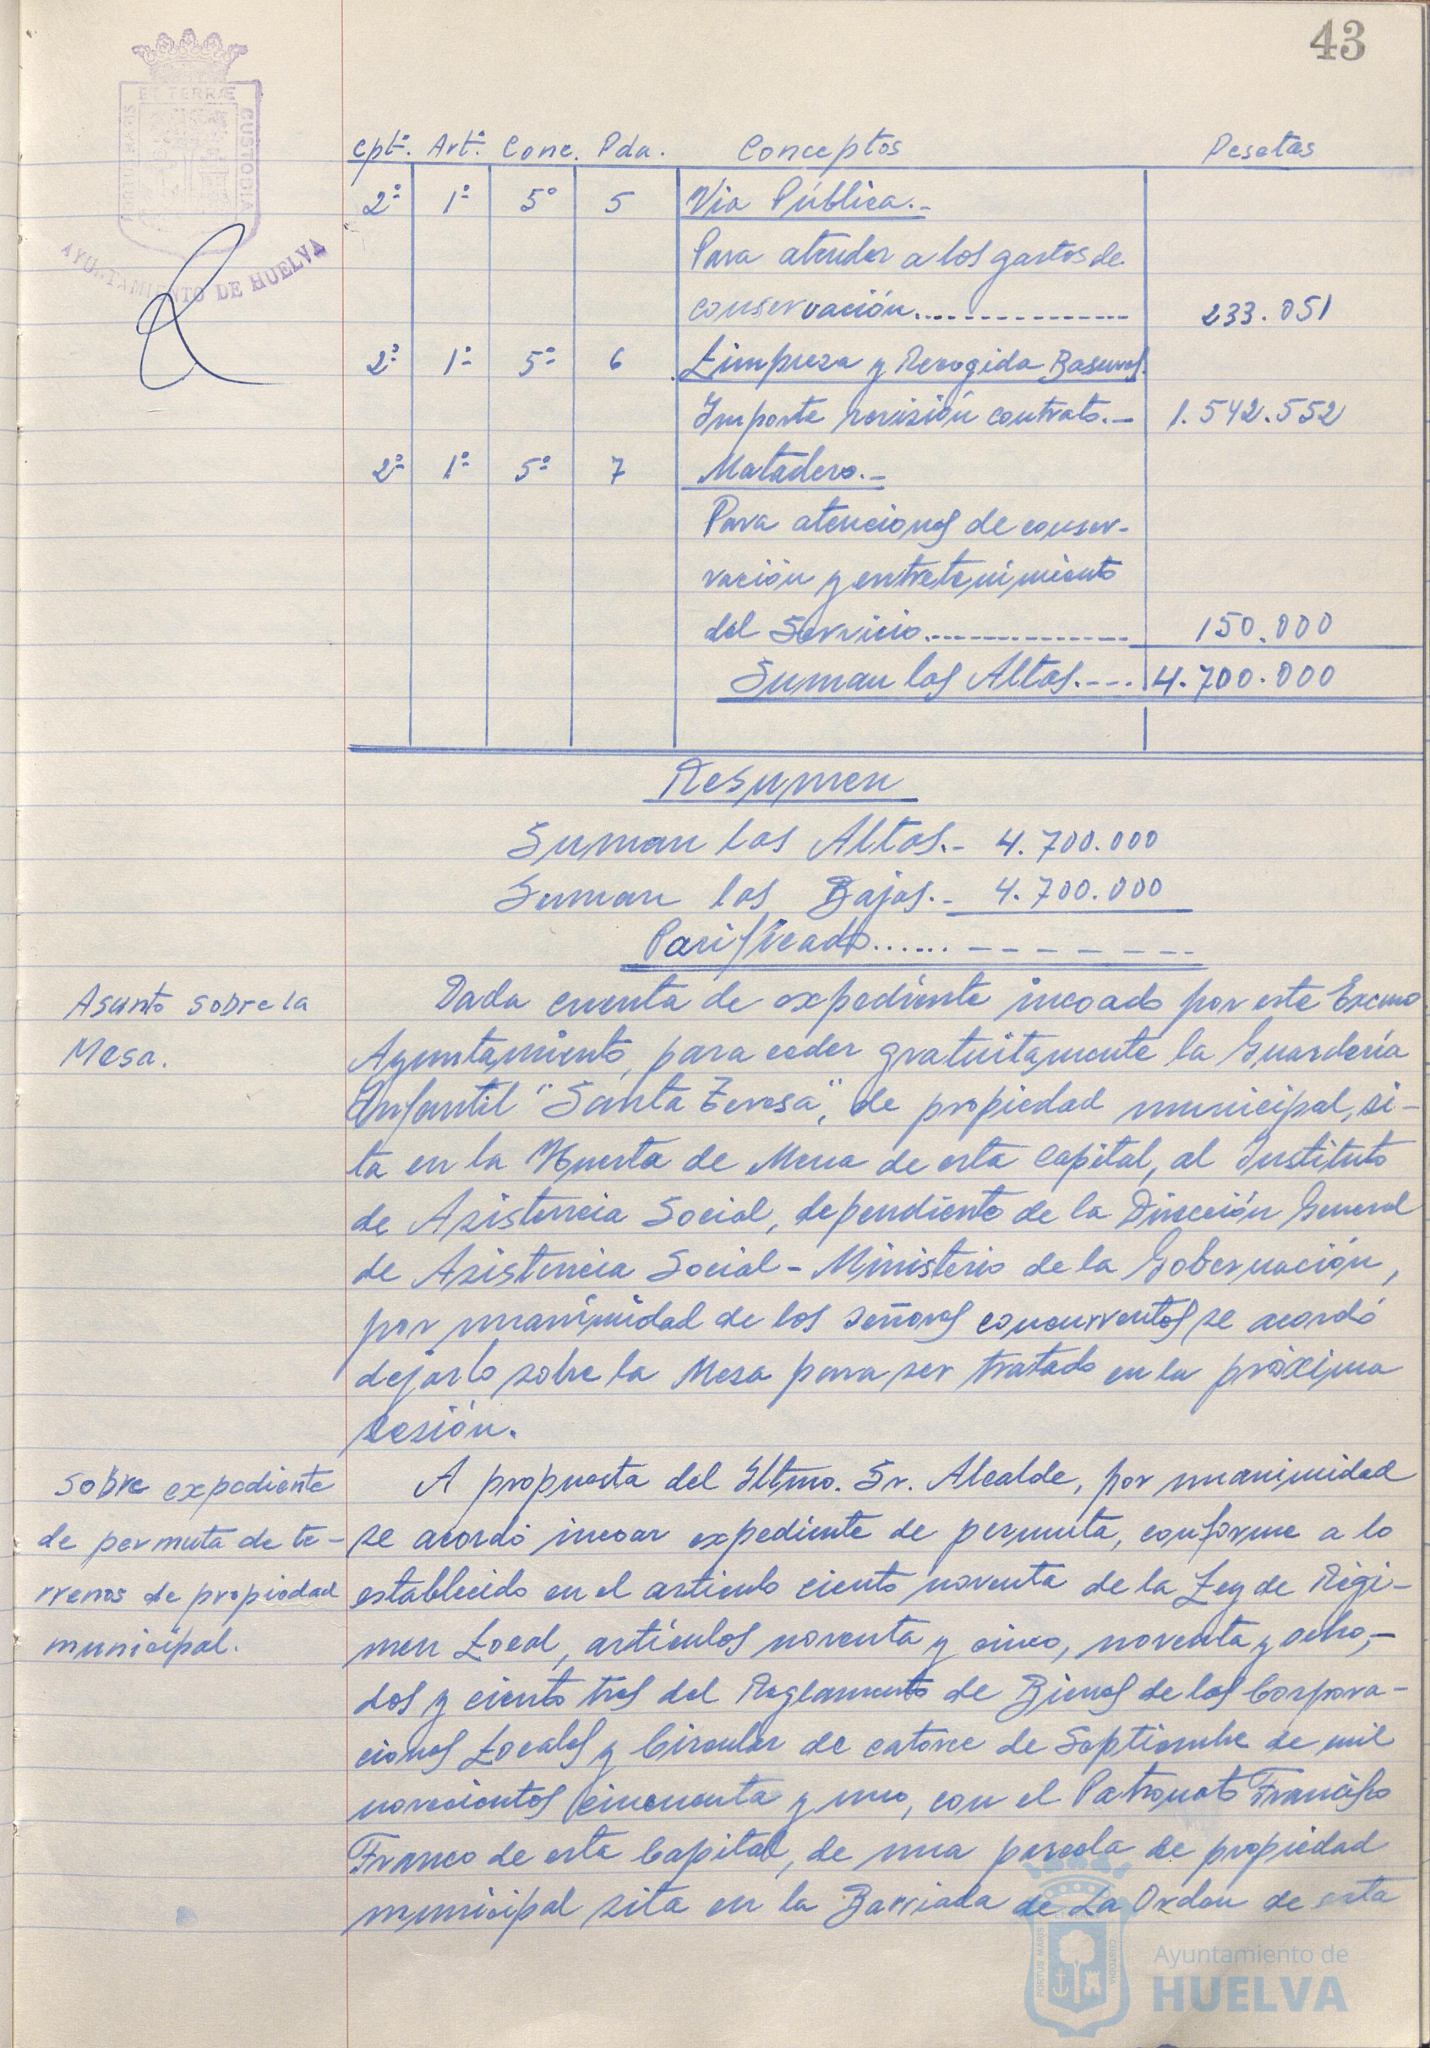 43
ET TERRÆ
CUSTODIA
PORTUS MARIS
AYUNTAMIENTO DE HUELVA
Cptº. Artº. Conc. Pda. Conceptos Pesetas
2º 1º 5º 5 Via Pública.-
Para atender a los gastos de
conservación................ 233.051
2º 1º 5º 6 Limpieza y Recogida Basuras.
Importe revisión contrato.- 1.542.552
2º 1º 5º 7 Matadero.-
Para atenciones de conser-
vación y entretenimiento
del Servicio................ 150.000
Suman las Altas.--- 4.700.000
Resumen
Suman las Altas.- 4.700.000
Suman las Bajas.- 4.700.000
Parificado...... - - - - - - -
Asunto sobre la
Mesa.
Dada cuenta de expediente incoado por este Excmo
Ayuntamiento, para ceder gratuitamente la Guardería
Infantil "Santa Teresa", de propiedad municipal, si-
ta en la Huerta de Mena de esta Capital, al Instituto
de Asistencia Social, dependiente de la Dirección General
de Asistencia Social - Ministerio de la Gobernación,
por unanimidad de los señores concurrentes se acordó
dejarlo sobre la Mesa para ser tratado en la próxima
sesión.
Sobre expediente
de permuta de te-
rrenos de propiedad
municipal.
A propuesta del Iltmo. Sr. Alcalde, por unanimidad
se acordó incoar expediente de permuta, conforme a lo
establecido en el artículo ciento noventa de la Ley de Régi-
men Local, artículos noventa y cinco, noventa y ocho,-
dos y ciento tres del Reglamento de Bienes de las Corpora-
ciones Locales y Circular de catorce de Septiembre de mil
novecientos cincuenta y uno, con el Patronato Francisco
Franco de esta Capital, de una parcela de propiedad
municipal sita en la Barriada de La Orden de esta
PORTUS MARIS
CUSTODIA
Ayuntamiento de
HUELVA